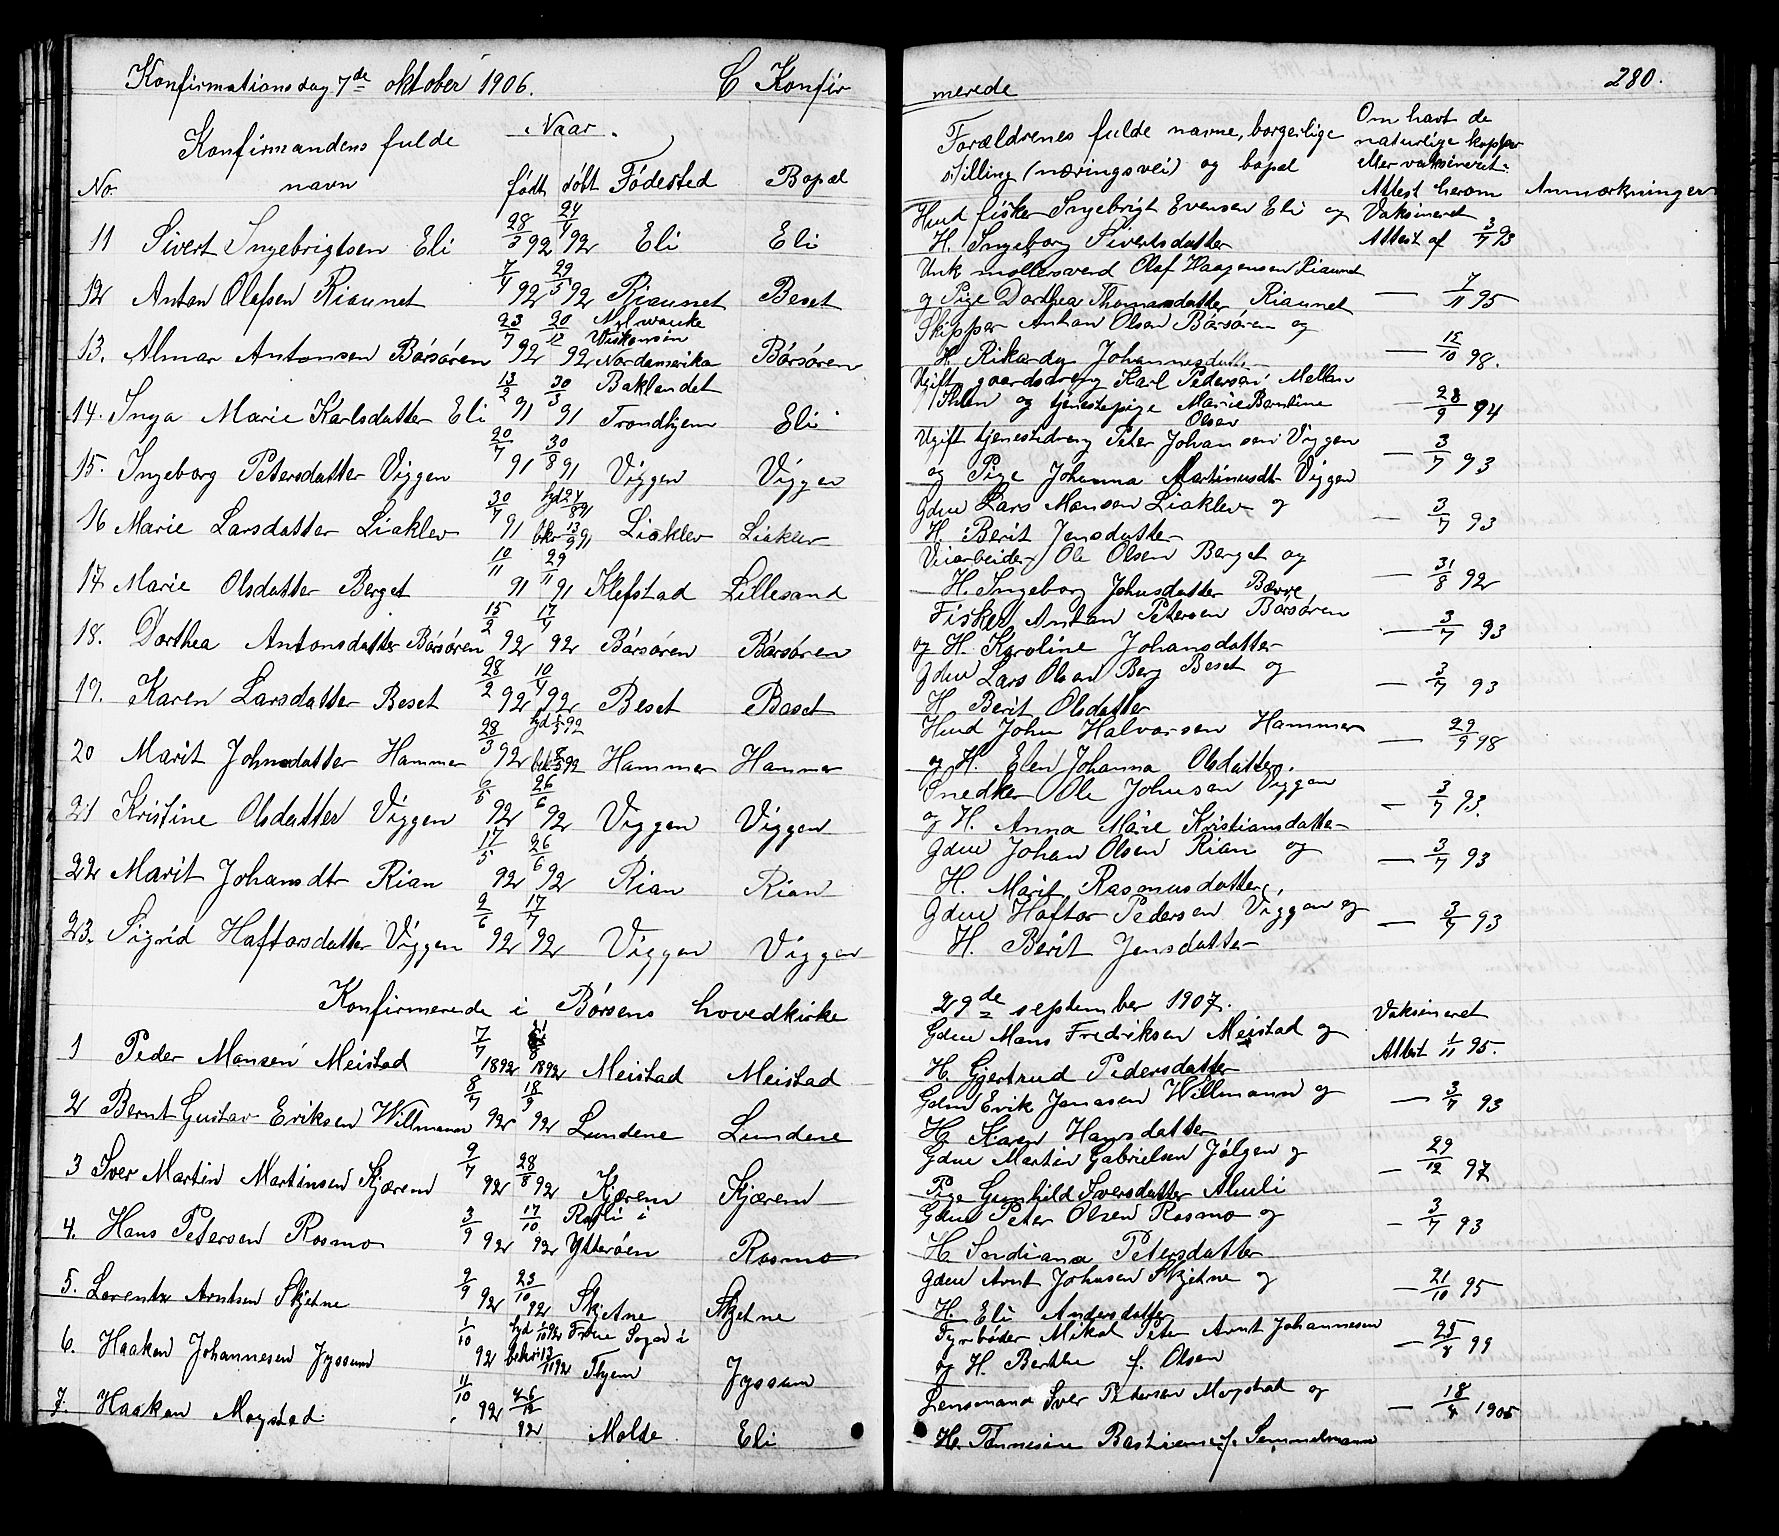 Konfirmationsdag 7de oktober 1906. C Konfir
merede 280.
No Konfirmandens fulde navn Naar født døbt Fødested Bopæl
Forældrenes fulde navne, borgerlige stilling (næringsvei) og bopæl
Om havt de naturlige kopper eller vaksineret. Attest herom Anmærkninger
11 Sivert Ingebrigtsen Eli 28/3 92 24/4 92 Eli Eli
Husd fisker Ingebrigt Evensen Eli og Vaksineret
H. Ingeborg Sivertsdatter Attest af 3/7 93
12 Anton Olafsen Riaunet 7/4 92 29/5 92 Riaunet Beset
Unk møllersvend Olaf Haagensen Riaunet
og Pige Dorthea Thomasdatter Riaunet — 7/11 95
13. Almar Antonsen Børsøren 23/7 92 20/12 92 Milwauke Viskonsin Nordamerika Børsøren
Skipper Anton Olsen Børsøren og
H. Rikarda Johannesdatter — 15/10 98.
14. Inga Marie Karlsdatter Eli 13/2 91 30/3 91 Baklandet Trondhjem Eli
Ugift gaardsdreng Karl Pedersen Mellem
Ihlen og tjenestepige Marie Berntine Olsen — 28/9 94
15. Ingeborg Petersdatter Viggen 20/7 91 30/8 91 Viggen Viggen
Ugift tjenestedreng Peter Johansen Viggen
og Pige Johanna Martinusdt Viggen — 3/7 93
16 Marie Larsdatter Liaklev 30/7 91 hjd 24/8 91 bkr 13/9 91 Liaklev Liaklev
Gdm Lars Monsen Liaklev og
H. Berit Jensdatter — 3/7 93
17 Marie Olsdatter Berget 10/11 91 29/11 91 Klefstad Lillesand
Veiarbeider Ole Olsen Berget og
H. Ingeborg Johnsdatter Bævre — 31/8 92
18. Dorthea Antonsdatter Børsøren 15/2 92 17/4 92 Børsøren Børsøren
Fisker Anton Petersen Børsøren
og H. Karoline Johansdatter — 3/7 93
19. Karen Larsdatter Beset 28/2 92 10/4 92 Beset Beset
Gdm Lars Olsen Berg Beset og
H Berit Olsdatter — 3/7 93
20 Marit Johnsdatter Hammer 28/3 92 Hammer Hammer
Husd John Halvorsen Hammer
og H. Elen Johanna Olsdatter. — 29/9 98
21 Kristine Olsdatter Viggen 6/5 92 26/6 92 Viggen Viggen
Snedker Ole Johnsen Viggen
og H. Anna Marie Kristiansdatter — 3/7 93.
22 Marit Johansdt Rian 17/5 92 26/6 92 Rian Rian
Gdm Johan Olsen Rian og
H. Marit Rasmusdatter. — 3/7 93
23. Sigrid Haftorsdatter Viggen 2/6 92 17/7 92 Viggen Viggen
Gdm Haftor Pedersen Viggen og
H. Berit Jensdatter — 3/7 93
Konfirmerede i Børsens hovedkirke 29de september 1907.
1 Peder Monsen Meistad 7/7 1892 1892 Meistad Meistad
Gdm Mons Fredriksen Meistad og Vaksineret
H. Gjertrud Pedersdatter Attest 1/11 95.
2 Bernt Gustav Eriksen Willmann 8/7 92 18/9 92 Lundene Lundene
Gdm Erik Jonasen Willmann og
H. Karen Hansdatter — 3/7 93
3 Iver Martin Martinsen Kjærem 9/7 92 28/8 92 Kjærem Kjærem
Gdm Martin Gabrielsen Jølgen og
Pige Gunhild Iversdatter — 29/12 97
4. Hans Petersen Rosmo 3/9 92 17/10 92 i Ytterøen Rosmo
Gdm Peter Olsen Rosmo og
H. Indiana Petersdatter — 3/7 93
5. Lorents Arntsen Skjetne 9/9 92 23/10 92 Skjetne Skjetne
Gdm Arnt Johnsen Skjetne og
H. Eli Andersdatter — 21/10 95
6. Haakon Johannesen Gyssum 1/10 92 hjd 1/10 92 bekr 13/11 92 Sogn i Thjem Gyssum
Fyrbøder Mikal Peter Arnt Johannesen
og H. Birthe f. Olsen — 25/4 99
7. Haakon Mogstad 11/10 92 26/12 92 Molde Eli
Lensmand Iver Petersen Mogstad og
H. Tennesine Bastiane f. Semmelmann — 18/4 1905